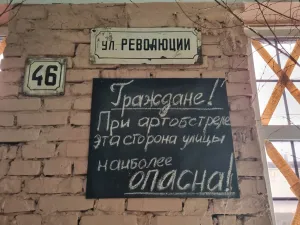 ул. РЕВОЛЮЦИИ
46
Граждане!
При артобстреле
эта сторона улицы
наиболее
ОПАСНА!